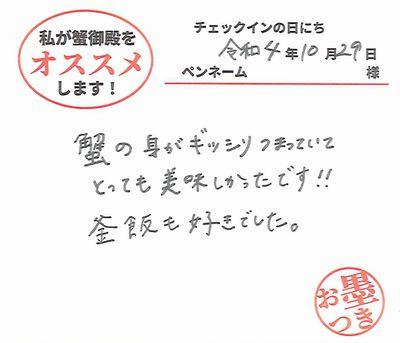 私が蟹御殿を
オススメ
します！
チェックインの日にち
令和4年10月29日
ペンネーム 様
蟹の身がギッシリつまっていて
とっても美味しかったです!!
釜飯も好きでした。
お墨つき